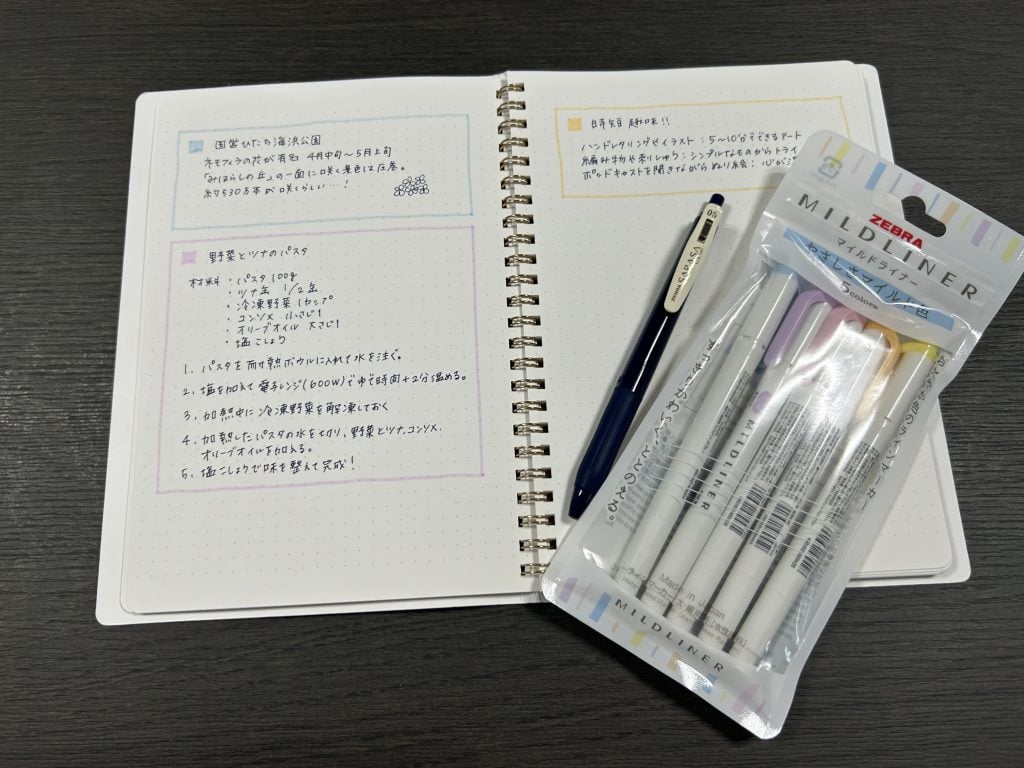 国営ひたち海浜公園
ネモフィラの花が有名 4月中旬〜5月上旬
「みはらしの丘」の一面に咲く景色は圧巻。
約530万本が咲くらしい…!
野菜とツナのパスタ
材料 ・パスタ 100g
・ツナ缶 1/2缶
・冷凍野菜 1カップ
・コンソメ 小さじ1
・オリーブオイル 大さじ1
・塩こしょう
1. パスタを耐熱ボウルに入れて水を注ぐ。
2. 塩を加えて電子レンジ(600W)でゆで時間+2分温める。
3. 加熱中に冷凍野菜を解凍しておく
4. 加熱したパスタの水を切り、野菜とツナ、コンソメ、
オリーブオイルを加える。
5. 塩こしょうで味を整えて完成!
時短趣味!!
ハンドレタリングやイラスト:5〜10分でできるアート
編み物や刺しゅう:シンプルなものからトライ
ポッドキャストを聞きながらぬり絵:心が
05
SARASA
ZEBRA
MILDLINER
マイルドライナー
やさしきマイルド色
5colors
すっきりかわいく、ととのえる。
おだやか色のラインマーカー
MILDLINER
Made in Japan
ラインマーカー
MILDLINER